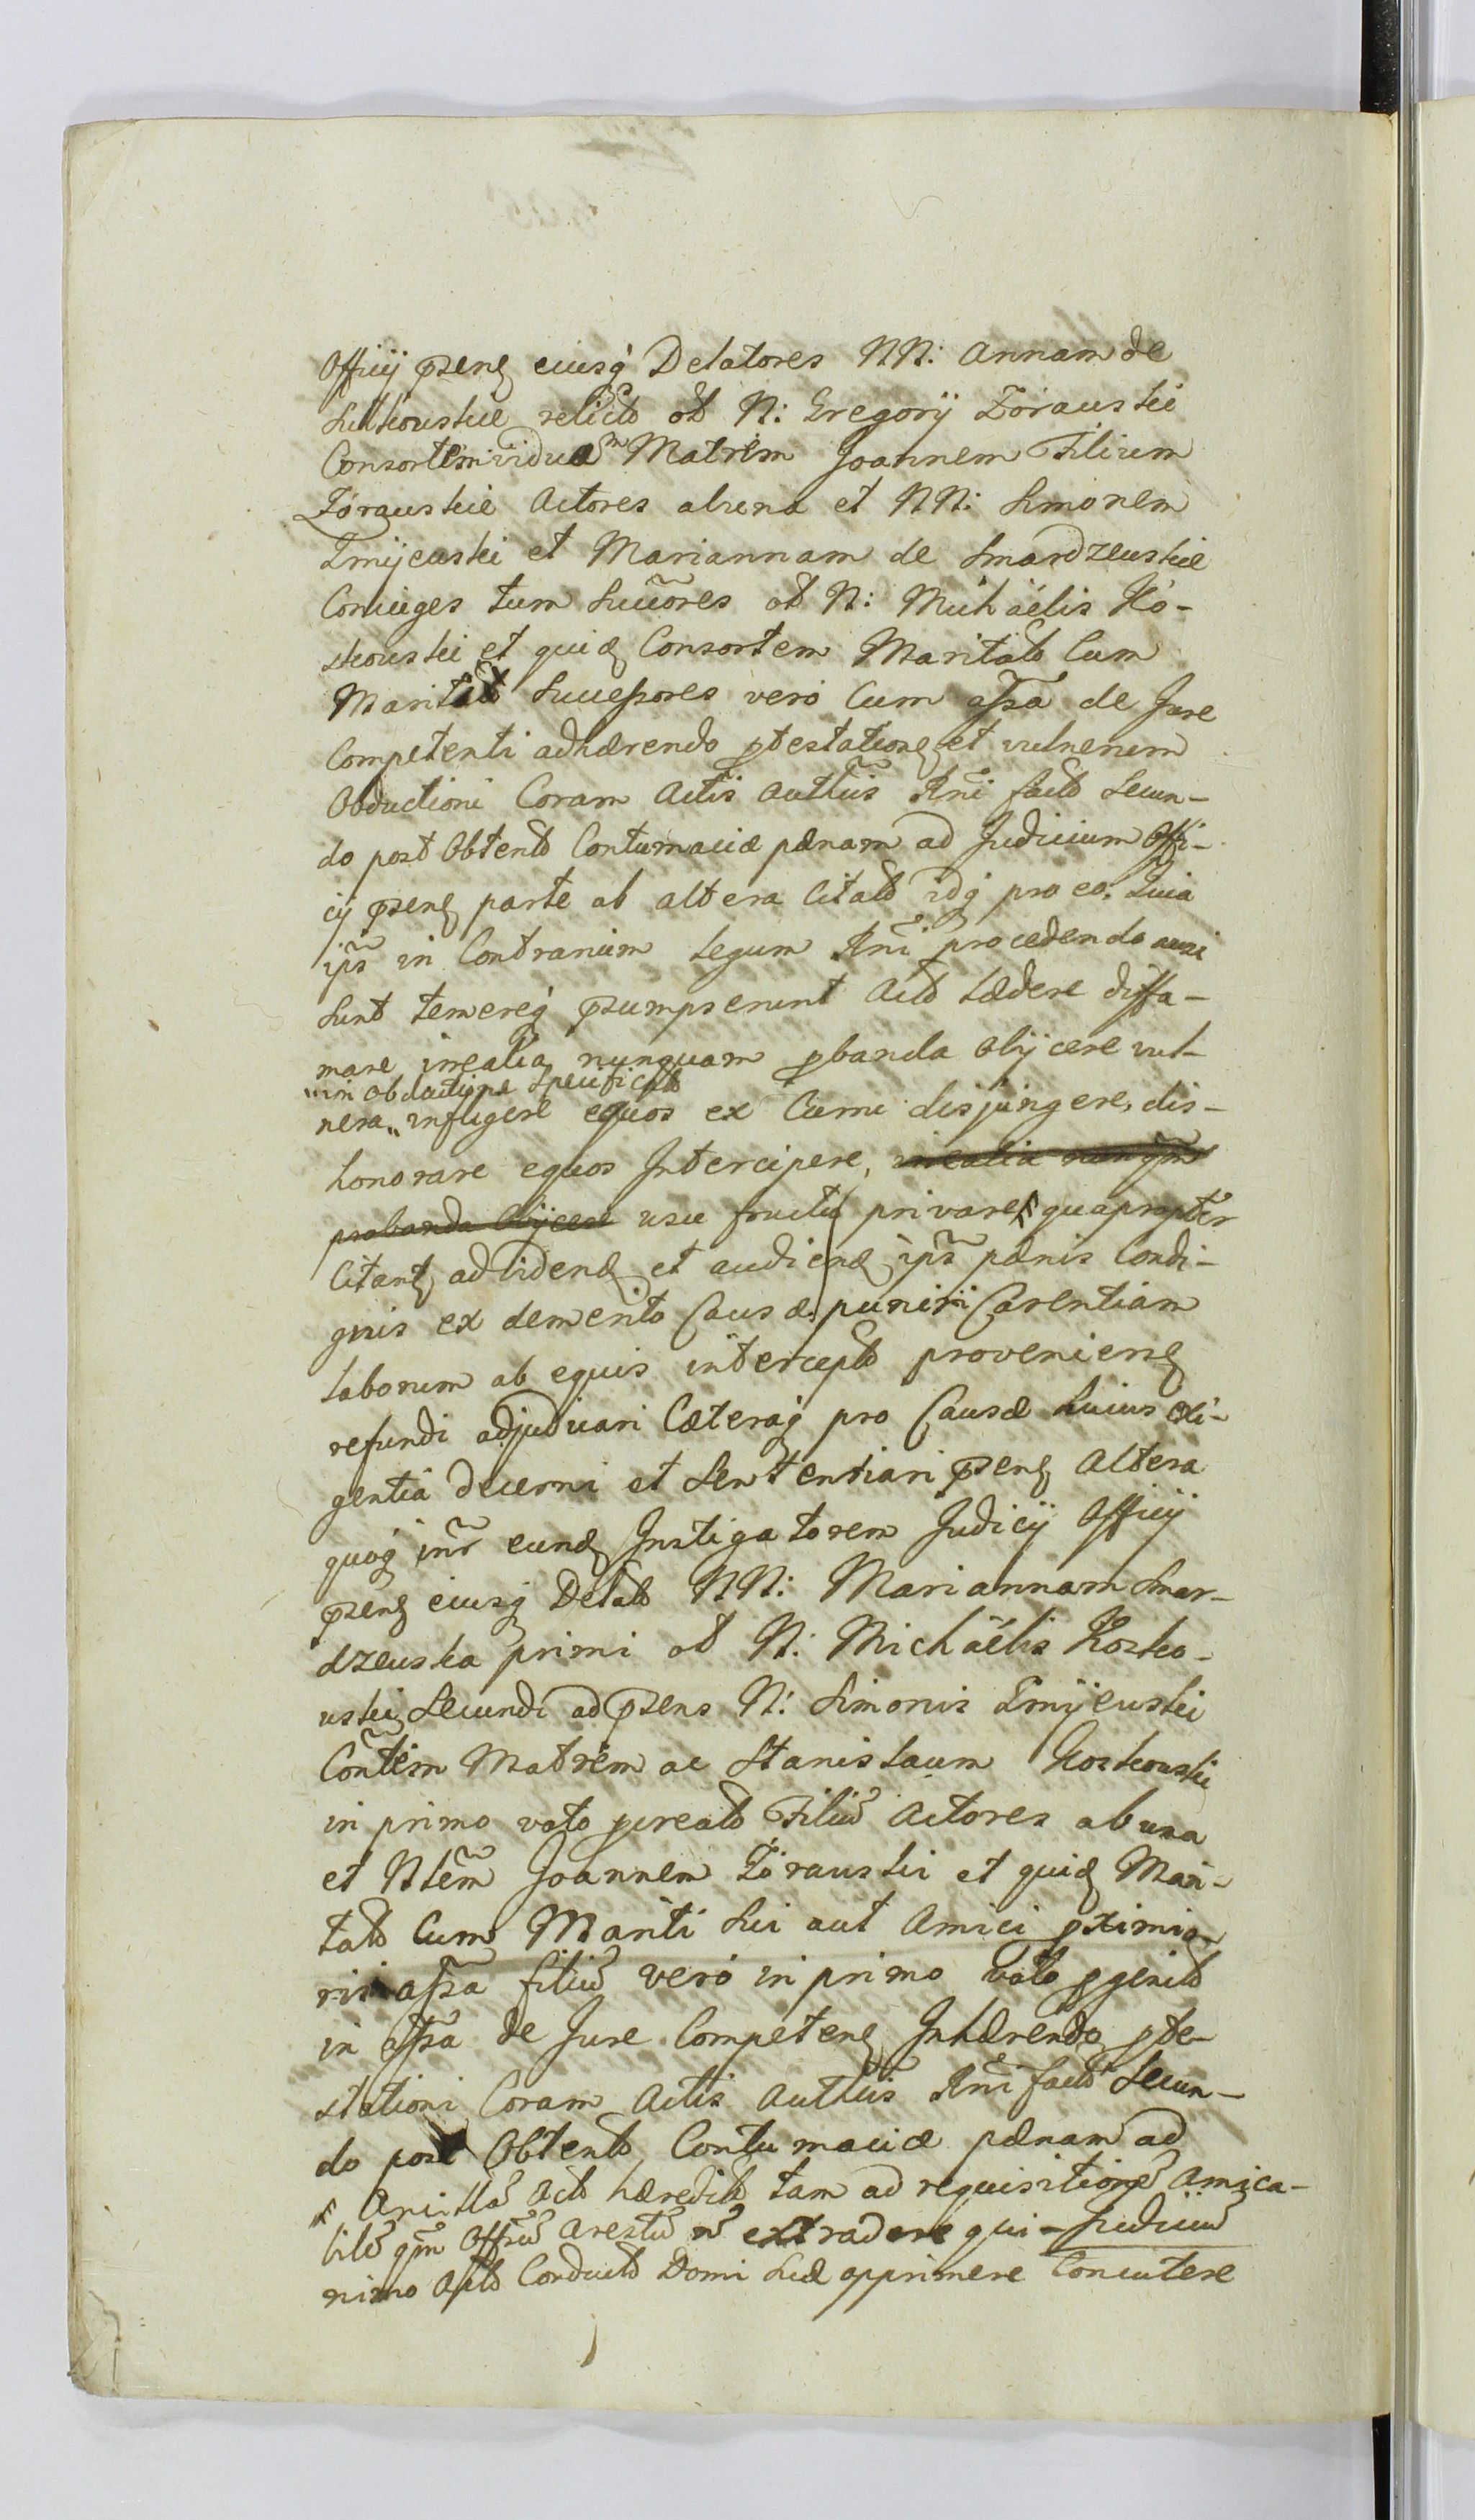 Officij pseng eiusq Delatores NN: Annam de
relicto ob N: Gregorij Zóraustii
Consortem viduam Matrem Joannem Filium
Zóraustie Actores ab una et NN: Simonem
Zmijeustii et Mariannam de Smardzeustie
Coniuges tum Succores ob N: Michaélis Ko-
skoustii et quid Consortem Maritato Cum
Marito Sucessores veró Cum assa de Jure
Competenti adhærendo ptestationi et vulnerum
Obductioni Coram Actis Authis Rni facto Secun-
do post Obtento Contumaciæ pænam ad Judicium Offi-
cij pseng parte ab altera Citato idq pro eo. Quia
ips in Contrarium Legum Rni procedendo ausi
sunt temereq psumpserunt Acto Lædere diffa-
mare irealia nunquam pbanda Obijcere vul-
"in obductione Specificato
nera " infligere equos ex Curru disjungere, dis-
honorare equos Intercipere, irealia nunqm
probanda Obijcere usu fructu privare quapropter
Citant ad videnđ et audienđ ips pænis Condi-
gnis ex demerito Causæ puniri Carentiam
Laborum ab equis intercepto provenieng
refundi adjudicari Cæteraq pro Causæ huius exi-
gentia decerni et Sententiari pseng Altera
quoq inr eund Instigatorem Judicij Officij
pseng eiusq Delato NN: Mariannam Smar-
dzeuska primi ob N: Michaélis Kosko-
ustii Secundi ad psens N: Simonis Zmijeustii
Contem Matrem ac Stanislaum Koskoustii
in primo voto pcreato Filiu Actores ab una
et Nlem Joannem Zóraustii et quid Mari-
tato Cum Mariti Sui aut Amici pximio-
ris assa filiu veró in primo voto pgenito
in assa de Jure Competeng Inhærendo pte-
stationi Coram Actis Authis Rni facto Secun-
do post Obtento Contumaciæ pænam ad
Ancilla Acto hæredito tam ad requisitione Amica-
bile qm Offiu Arestu n extradere qui - Judiciu
nimo Acto Conducto Domi Suæ opprimere Concutere